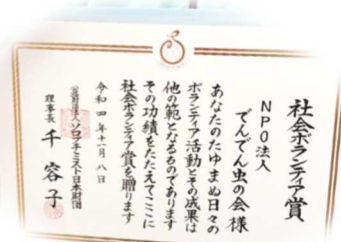 社会ボランティア賞
NPO法人
でんでん虫の会 様
あなたのたゆまぬ日々の
ボランティア活動とその成果は
他の範となるものであります
その功績をたたえてここに
社会ボランティア賞を贈ります
令和四年十一月八日
公益財団法人ソロプチミスト日本財団
理事長 千 容子